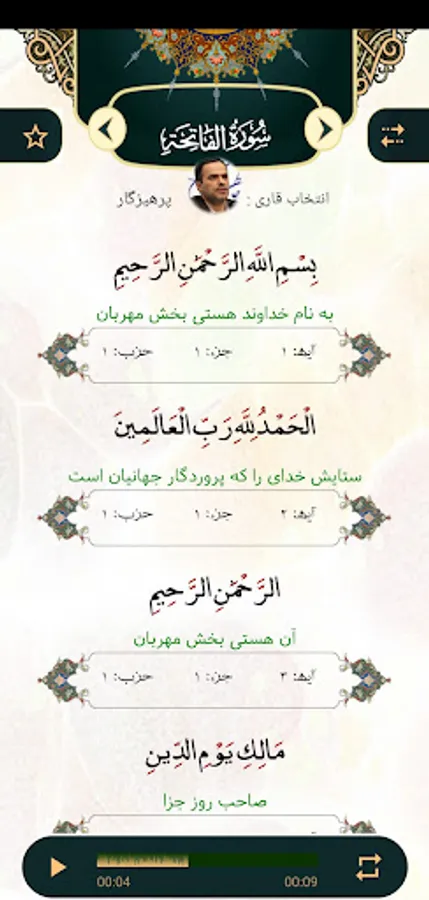 سُورَةُ الفَاتِحَةِ
انتخاب قاری : پرهیزگار
بِسْمِ اللَّهِ الرَّحْمَٰنِ الرَّحِيمِ
به نام خداوند هستی بخش مهربان
آیه: ۱ جزء: ۱ حزب: ۱
الْحَمْدُ لِلَّهِ رَبِّ الْعَالَمِينَ
ستایش خدای را که پروردگار جهانیان است
آیه: ۲ جزء: ۱ حزب: ۱
الرَّحْمَٰنِ الرَّحِيمِ
آن هستی بخش مهربان
آیه: ۳ جزء: ۱ حزب: ۱
مَالِكِ يَوْمِ الدِّينِ
صاحب روز جزا
00:04 00:09